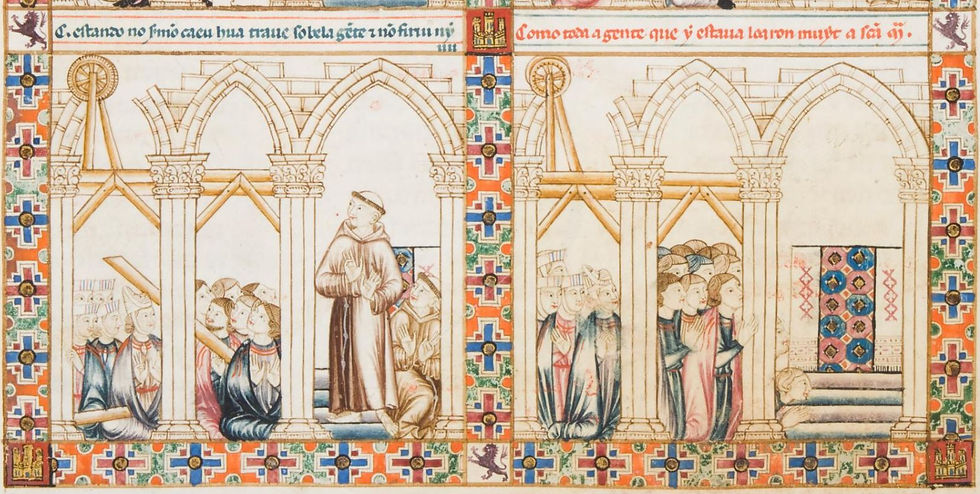 C. estando no s̃mõ caeu hũa traue sobela gẽte ⁊ nõ firiu nỹ
Como toda a gente que ý estaua loaron muyt a sc̃a m̃.